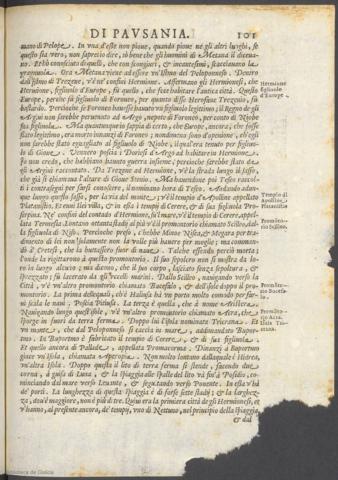 DI PAVSANIA. 101
mano di Pelope. In vna d'esse non pioue, quando pioue ne gli altri luoghi, se
questo sia vero, non saprei io dire, sò bene che gli huomini di Metana il diceua-
no. Et hò conosciuto di quelli, che con scongiuri, & incantesimi, scacciauano la
gragnuola. Ora Metana viene ad essere vn'Istmo del Peloponneso. Dentro
dall'Istmo di Trezene, v'è ne' confini Hermione. Affermano gli Hermionesi, che
Hermione, figliuolo d'Europe, fù quello, che fece habitare l'antica città. Questo
Europe, perche fù figliuolo di Foroneo, per quanto disse Herofane Trezenio, fù
bastardo. Perciòche Foroneo hauesse hauuto figliuolo legitimo, il Regno de gli
Argiui non sarebbe peruenuto ad Argo, nepote di Foroneo, per conto di Niobe
sua figliuola. Ma quantunque io sappia di certo, che Europe, ancora, che fosse
stato legitimo, era morto inanzi di Foroneo; nondimeno sono d'openione, ch'egli
non sarebbe stato agguagliato al figliuolo di Niobe, il qual'era tenuto per figliuo-
lo di Gioue. Vennero poscia i Doriesi d'Argo ad habitar in Hermione.
Io non credo, che habbiano hauuto guerra insieme, perciòche sarebbe stato da
gli Argiui raccontato. Da Trezene ad Hermione, v'è la strada lungo il sasso,
che già si chiamaua l'altare di Gioue Stenio. Ma hauendone poi Teseo raccol-
ti i contrasegni per farsi conoscere, il nominano hora di Teseo. Andando adun-
que lungo questo sasso, per la via del monte, v'è il tempio d'Apolline appellato
Platanistio. Et ini è Ilei villa, & in essa i tempi di Cerere, & di sua figliuola Pro-
serpina. Ne' confini del contado d'Hermione, sù'l mare, v'è il tempio di Cerere, appel-
lata Termesia. Lontano ottanta stadij al più v'è il promontorio chiamato Scilleo, dal-
la figliuola di Niso. Perciòche preso, c'hebbe Minos Nisea, & Megara per tra-
dimento di lei non solamente non la volle più hauere per moglie; ma commanda-
dò i Cretesi, che la buttassero fuor di naue. Talche essendo perciò morta;
l'onde la rigittarono à questo promontorio. Il suo sepolcro non si mostra da lo-
ro in luogo alcuno; ma dicono, che il suo corpo, lasciato senza sepoltura, &
sprezzato; fù lacerato da gli vccelli marini. Dallo Scilleo, nauigando verso la
Città, v'è vn'altro promontorio chiamato Bucefalo, & dopò dell'Isole doppo il pro-
montorio. La prima delle quali, ch'è Haliusa hà vn porto molto commodo per far-
ui scala le naui. Poscia Pitiusa. La terza è quella, che si nome Aristera.
Nauigando lungo quest'Isole, v'è vn'altro promontorio chiamato Acra, che
sporge in fuori da terra ferma. Doppo lui l'Isola nominata Tricrana. Et
vn monte, che dal Peloponneso si caccia in mare, addimandato Buporto.
In Buportmo è fabricato il tempio di Cerere, & di sua figliuola.
Et quello ancora di Pallade, appellata Promacorma. Dinanzi à Buportmo
giace vn'Isola, chiamata Aperopia. Non molto lontano dalla quale è Hidrea,
vn'altra Isola. Doppo questa il lito di terra ferma si stende, facendo due
corna, à guisa di Luna, & la spiaggia alle spalle del lito và fin'à Possidio, co-
minciando dal mare verso Leuante, & seguitando verso Ponente. In essa v'hà
de' porti. La lunghezza di questa spiaggia è di forse sette stadij; & la larghez-
za, doue è maggiore, non è più di tre. Quiui era la primiera città de gli Hermionesi, et
v'hanno, al presente ancora, de' tempi, vno di Nettuno, nel principio della spiaggia,
& dal
Hermione
figliuolo
d'Europe.
Tempio di
Apolline
Platanistio
Promōto-
rio Scilleo.
Promōto-
rio Bucefa-
lo.
Promōto-
rio Acra.
Isola Tri-
crana.
Biblioteca de Galicia